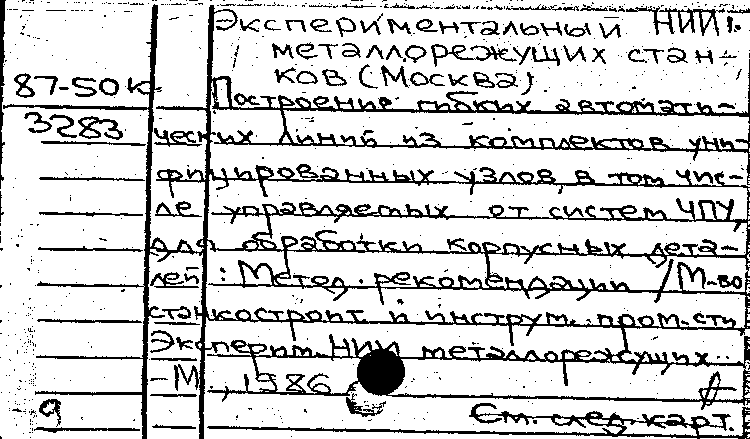 Экспериментальный НИИ
металлорежущих стан-
ков (Москва)
87-50к
Построение гибких автомати-
3283
ческих линий из комплектов уни-
фицированных узлов, в том чис-
ле управляемых от систем ЧПУ,
для обработки корпусных дета-
лей : Метод. рекомендации / М-во
станкостроит. и инструм. пром-сти,
Эксперим. НИИ металлорежущих...
-М., 1986
9
См. след. карт.